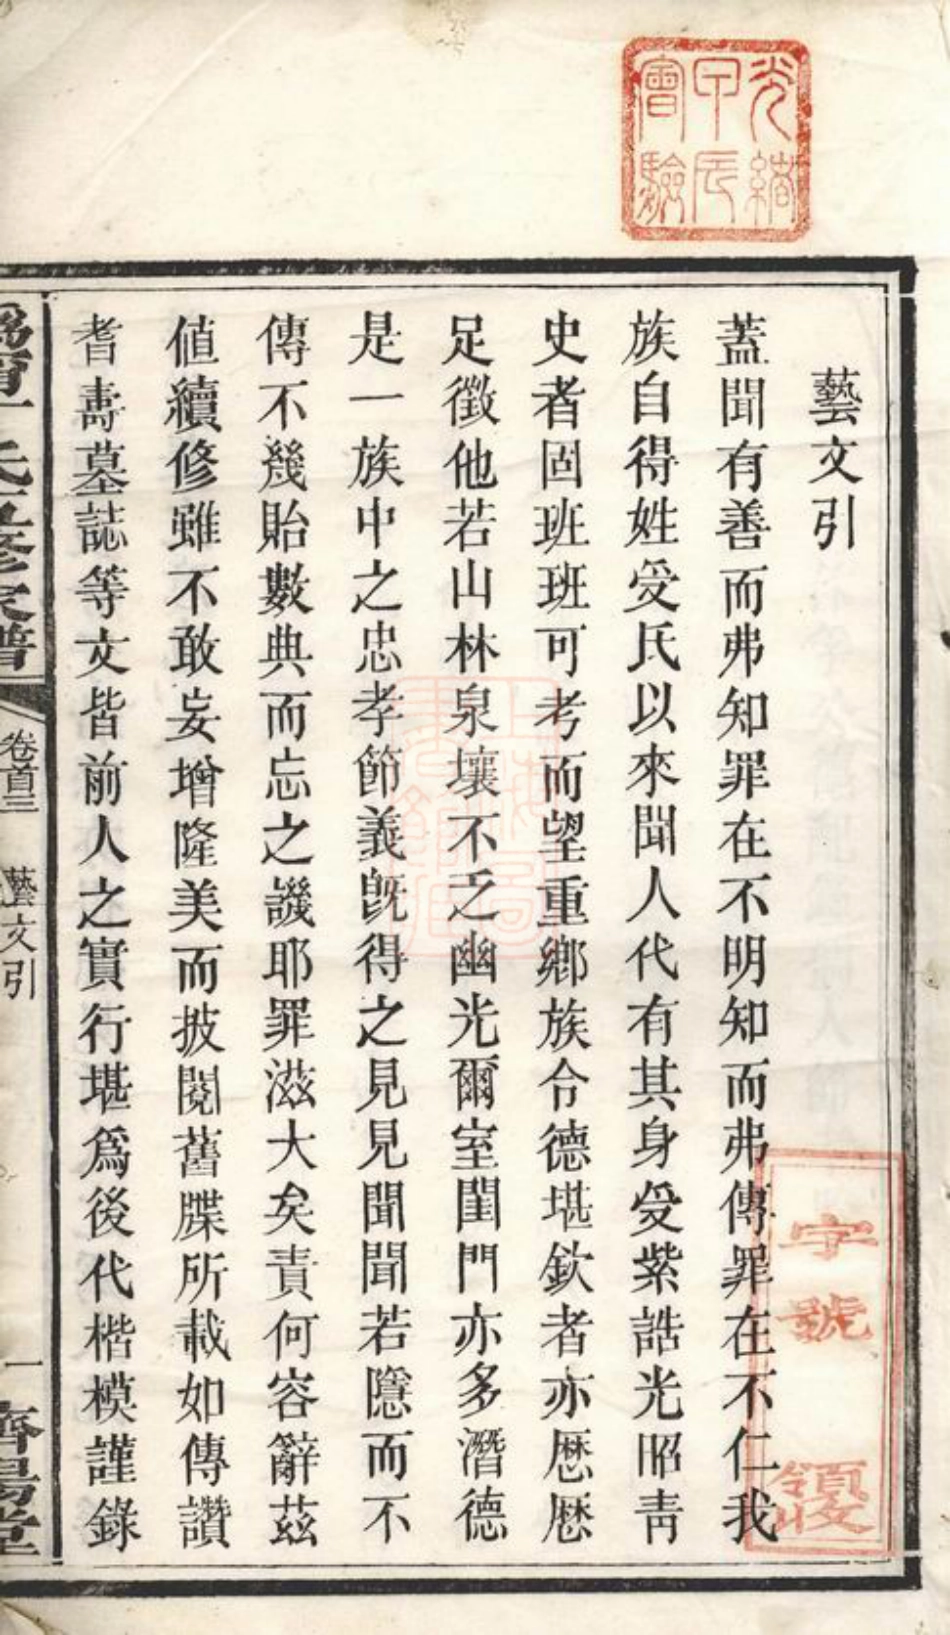 光緒
甲辰
會驗
藝文引
蓋聞有善而弗知罪在不明知而弗傳罪在不仁我
族自得姓受氏以來聞人代有其身受紫誥光昭青
史者固班班可考而望重鄉族令德堪欽者亦歷歷
足徵他若山林泉壤不乏幽光爾室閨門亦多潛德
是一族中之忠孝節義旣得之見見聞聞若隱而不
傳不幾貽數典而忘之譏耶罪滋大矣責何容辭茲
値續修雖不敢妄增隆美而披閱舊牒所載如傳讚
耆壽墓誌等文皆前人之實行堪爲後代楷模謹錄
卷首三　藝文引　一　濟陽堂
字號　領
上海圖書館藏